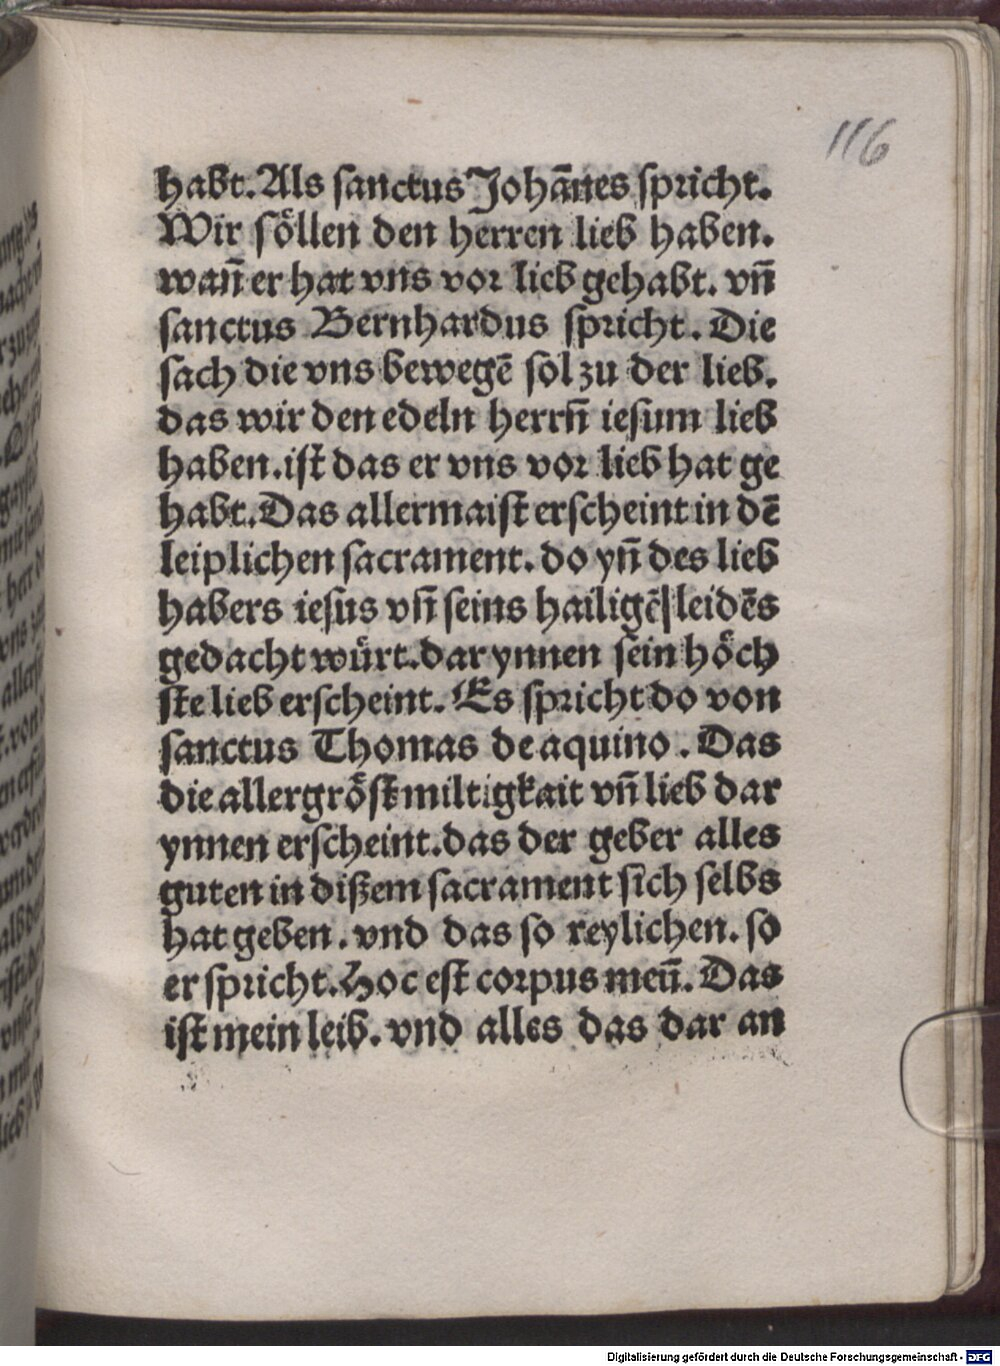 116
habt. Als sanctus Johānes spricht.
Wir söllen den herren lieb haben.
wañ er hat vns vor lieb gehabt. vñ
sanctus Bernhardus spricht. Die
sach die vns bewegē sol zu der lieb.
das wir den edeln herrñ iesum lieb
haben. ist das er vns vor lieb hat ge
habt. Das allermaist erscheint in dē
leiplichen sacrament. do yñ des lieb
habers iesus vñ seins hailigē leidēs
gedacht würt. dar ynnen sein höch
ste lieb erscheint. Es spricht do von
sanctus Thomas de aquino. Das
die allergröst miltigkait vñ lieb dar
ynnen erscheint. das der geber alles
guten in dißem sacrament sich selbs
hat geben. vnd das so reylichen. so
er spricht. Hoc est corpus meū. Das
ist mein leib. vnd alles das dar an
Digitalisierung gefördert durch die Deutsche Forschungsgemeinschaft - DFG